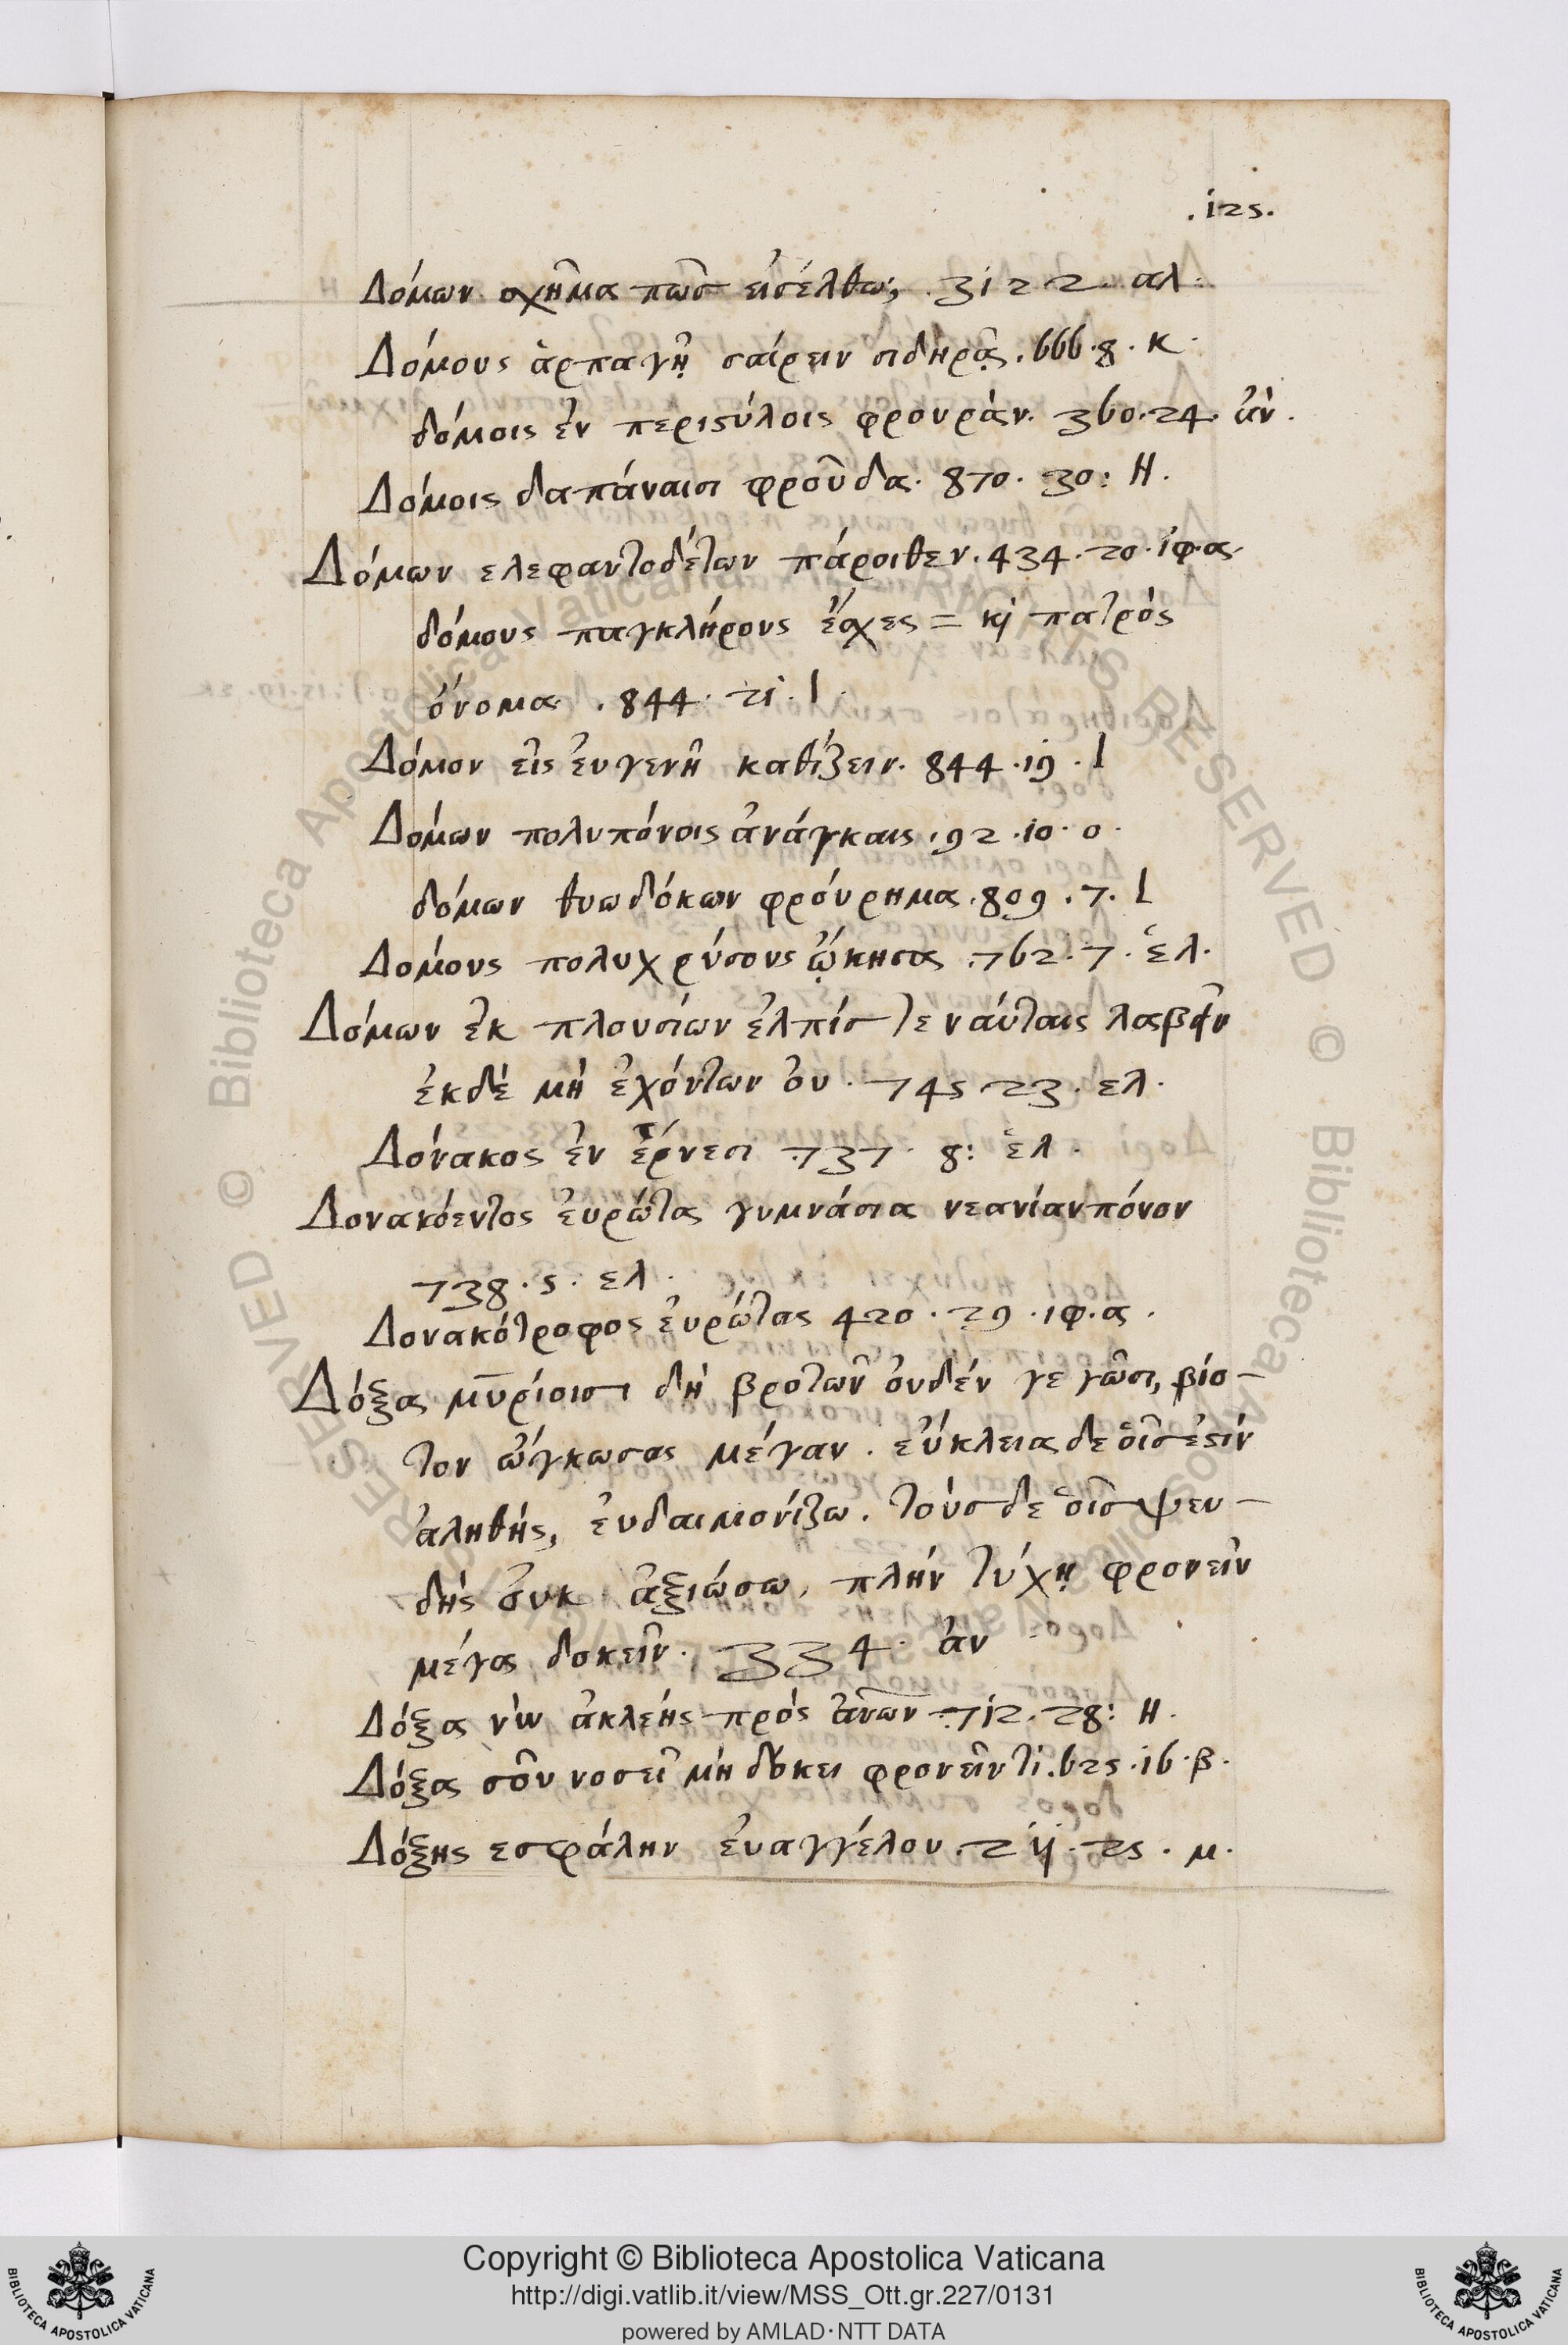 .125.
Δόμων σχῆμα πῶσ εἰσέλθω; 3122. αλ.
Δόμους ἁρπαγῇ σαίρειν σιδηρᾷ. 666.8. κ.
δόμοις ἐν περιστύλοις φρουρὰν. 360.24. ἀν.
Δόμοις δαπάναισι φροῦδα. 870. 30: Η.
Δόμων ελεφαντοδέτων πάροιθεν. 434. 20. ἰφ.α.
δόμους παγκλήρους ἔσχες = κỳ πατρὸς
ὄνομα. 844. 21. Ι.
Δόμον εἰς ἐυγενῆ καθίζειν. 844. 19. Ι
Δόμων πολυπόνοις ἀνάγκαις. 92. 10. ο.
δόμων θυωδόκων φρόυρημα. 809. 7. Ι
Δομόυς πολυχρύσους ᾤκησας 762. 7. ἑλ.
Δόμων ἐκ πλουσίων ἐλπίσ τε ναύταις λαβεῖν
ἐκδὲ μὴ ἐχόντων ὀυ. 745 23. ελ.
Δόνακος ἐν ἔρνεσι 737. 8: ἑλ.
Δονακόεντος ἐυρώτας γυμνάσια νεανίαν πόνον
738. 5. ελ.
Δονακότροφος ἐυρώτας 420. 29. ιφ.α.
Δόξα μυρίοισι δὴ βροτῶν ὀυδέν γε γῶσι, βίο-
τον ὤγκωσας μέγαν. εὔκλεια δε οἷσ ἐστὶν
ἀληθής, ἐυδαιμονίζω. τοὺσ δε οἷσ ψευ-
δὴς ὀυκ ἀξιώσω, πλὴν τύχῃ φρονεῖν
μέγα δοκεῖν. 334. ἀν
Δόξα νῷν ἀκλεὴς πρὸς ἀν͞ων 712. 28: Η.
Δόξα σοῦ νοσεῖ μὴ δόκει φρονεῖν τὶ. 625. 16. β.
Δόξης εσφάλην ἐυαγγέλου. 211. 25. μ.
Copyright © Biblioteca Apostolica Vaticana
http://digi.vatlib.it/view/MSS_Ott.gr.227/0131
powered by AMLAD·NTT DATA